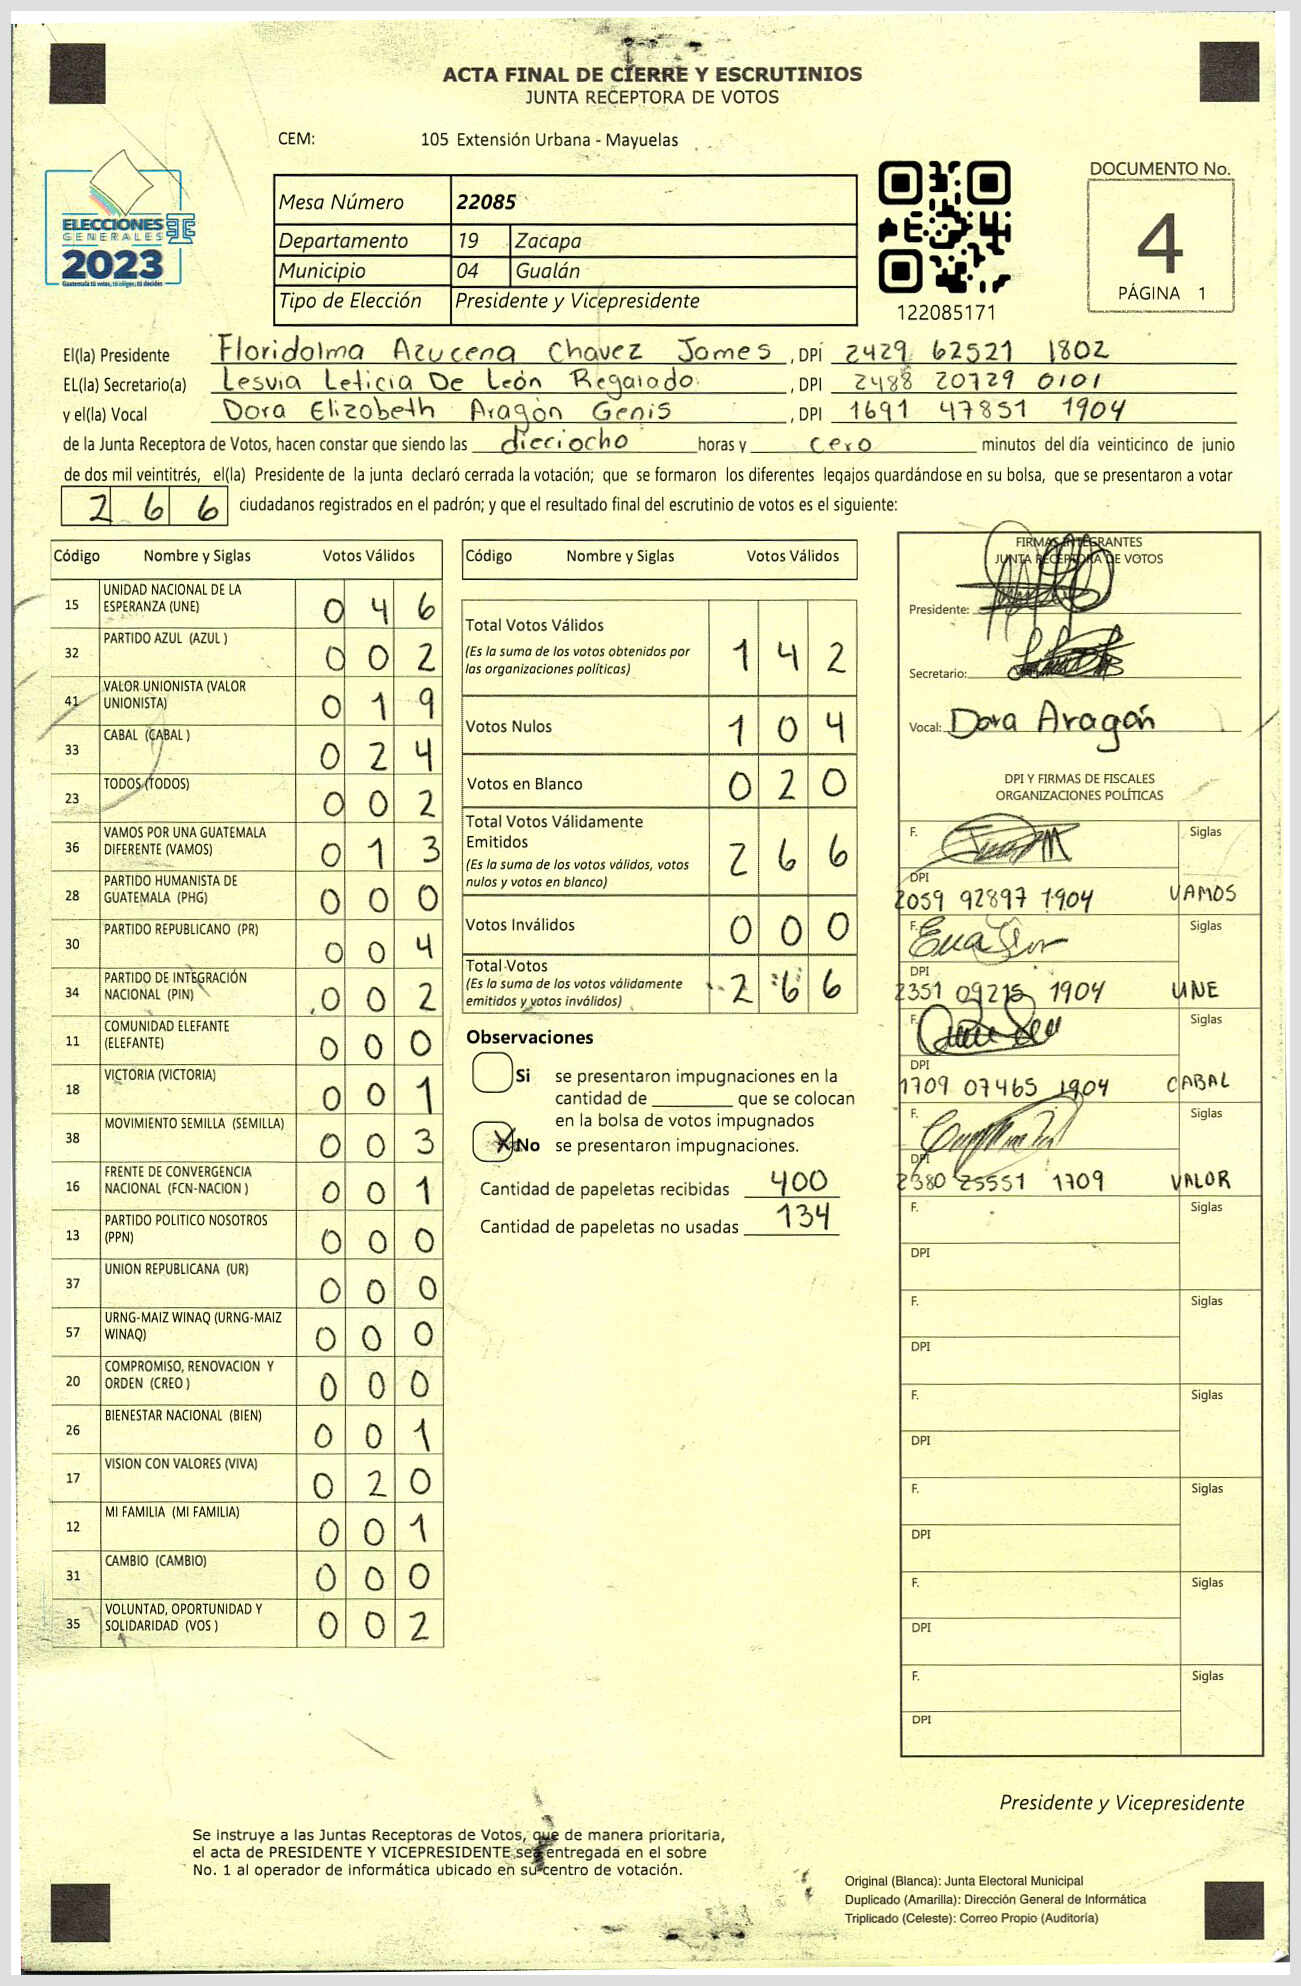 ACTA FINAL DE CIERRE Y ESCRUTINIOS
JUNTA RECEPTORA DE VOTOS
CEM: 105 Extensión Urbana - Mayuelas
ELECCIONES
GENERALES
2023
Guatemala tú votas, tú eliges, tú decides
Mesa Número 22085
Departamento 19 Zacapa
Municipio 04 Gualán
Tipo de Elección Presidente y Vicepresidente
122085171
DOCUMENTO No.
4
PÁGINA 1
El(la) Presidente Floridolma Azucena Chavez Jomes, DPI 2429 62521 1802
EL(la) Secretario(a) Lesvia Leticia De León Regalado, DPI 2488 20729 0101
y el(la) Vocal Dora Elizobeth Aragón Genis, DPI 1691 47851 1904
de la Junta Receptora de Votos, hacen constar que siendo las dieciocho horas y cero minutos del día veinticinco de junio
de dos mil veintitrés, el(la) Presidente de la junta declaró cerrada la votación; que se formaron los diferentes legajos quardándose en su bolsa, que se presentaron a votar
266 ciudadanos registrados en el padrón; y que el resultado final del escrutinio de votos es el siguiente:
Código Nombre y Siglas Votos Válidos
15 UNIDAD NACIONAL DE LA ESPERANZA (UNE) 046
32 PARTIDO AZUL (AZUL ) 002
41 VALOR UNIONISTA (VALOR UNIONISTA) 019
33 CABAL (CABAL ) 024
23 TODOS (TODOS) 002
36 VAMOS POR UNA GUATEMALA DIFERENTE (VAMOS) 013
28 PARTIDO HUMANISTA DE GUATEMALA (PHG) 000
30 PARTIDO REPUBLICANO (PR) 004
34 PARTIDO DE INTEGRACIÓN NACIONAL (PIN) 002
11 COMUNIDAD ELEFANTE (ELEFANTE) 000
18 VICTORIA (VICTORIA) 001
38 MOVIMIENTO SEMILLA (SEMILLA) 003
16 FRENTE DE CONVERGENCIA NACIONAL (FCN-NACION ) 001
13 PARTIDO POLITICO NOSOTROS (PPN) 000
37 UNION REPUBLICANA (UR) 000
57 URNG-MAIZ WINAQ (URNG-MAIZ WINAQ) 000
20 COMPROMISO, RENOVACION Y ORDEN (CREO ) 000
26 BIENESTAR NACIONAL (BIEN) 001
17 VISION CON VALORES (VIVA) 020
12 MI FAMILIA (MI FAMILIA) 001
31 CAMBIO (CAMBIO) 000
35 VOLUNTAD, OPORTUNIDAD Y SOLIDARIDAD (VOS ) 002
Código Nombre y Siglas Votos Válidos
Total Votos Válidos 142
(Es la suma de los votos obtenidos por
las organizaciones políticas)
Votos Nulos 104
Votos en Blanco 020
Total Votos Válidamente
Emitidos 266
(Es la suma de los votos válidos, votos
nulos y votos en blanco)
Votos Inválidos 000
Total Votos 266
(Es la suma de los votos válidamente
emitidos y votos inválidos)
Observaciones
Si se presentaron impugnaciones en la
cantidad de ________ que se colocan
en la bolsa de votos impugnados
X No se presentaron impugnaciones.
Cantidad de papeletas recibidas 400
Cantidad de papeletas no usadas 134
FIRMAS INTEGRANTES
JUNTA RECEPTORA DE VOTOS
Presidente:
Secretario:
Vocal: Dora Aragón
DPI Y FIRMAS DE FISCALES
ORGANIZACIONES POLÍTICAS
F. Siglas
DPI
2059 92897 1904 VAMOS
F. Siglas
DPI
2351 09215 1904 UNE
F. Siglas
DPI
1709 07465 1904 CABAL
F. Siglas
DPI
2380 25551 1709 VALOR
F. Siglas
DPI
F. Siglas
DPI
F. Siglas
DPI
F. Siglas
DPI
F. Siglas
DPI
F. Siglas
DPI
Presidente y Vicepresidente
Se instruye a las Juntas Receptoras de Votos, que de manera prioritaria,
el acta de PRESIDENTE Y VICEPRESIDENTE sea entregada en el sobre
No. 1 al operador de informática ubicado en su centro de votación.
Original (Blanca): Junta Electoral Municipal
Duplicado (Amarilla): Dirección General de Informática
Triplicado (Celeste): Correo Propio (Auditoría)